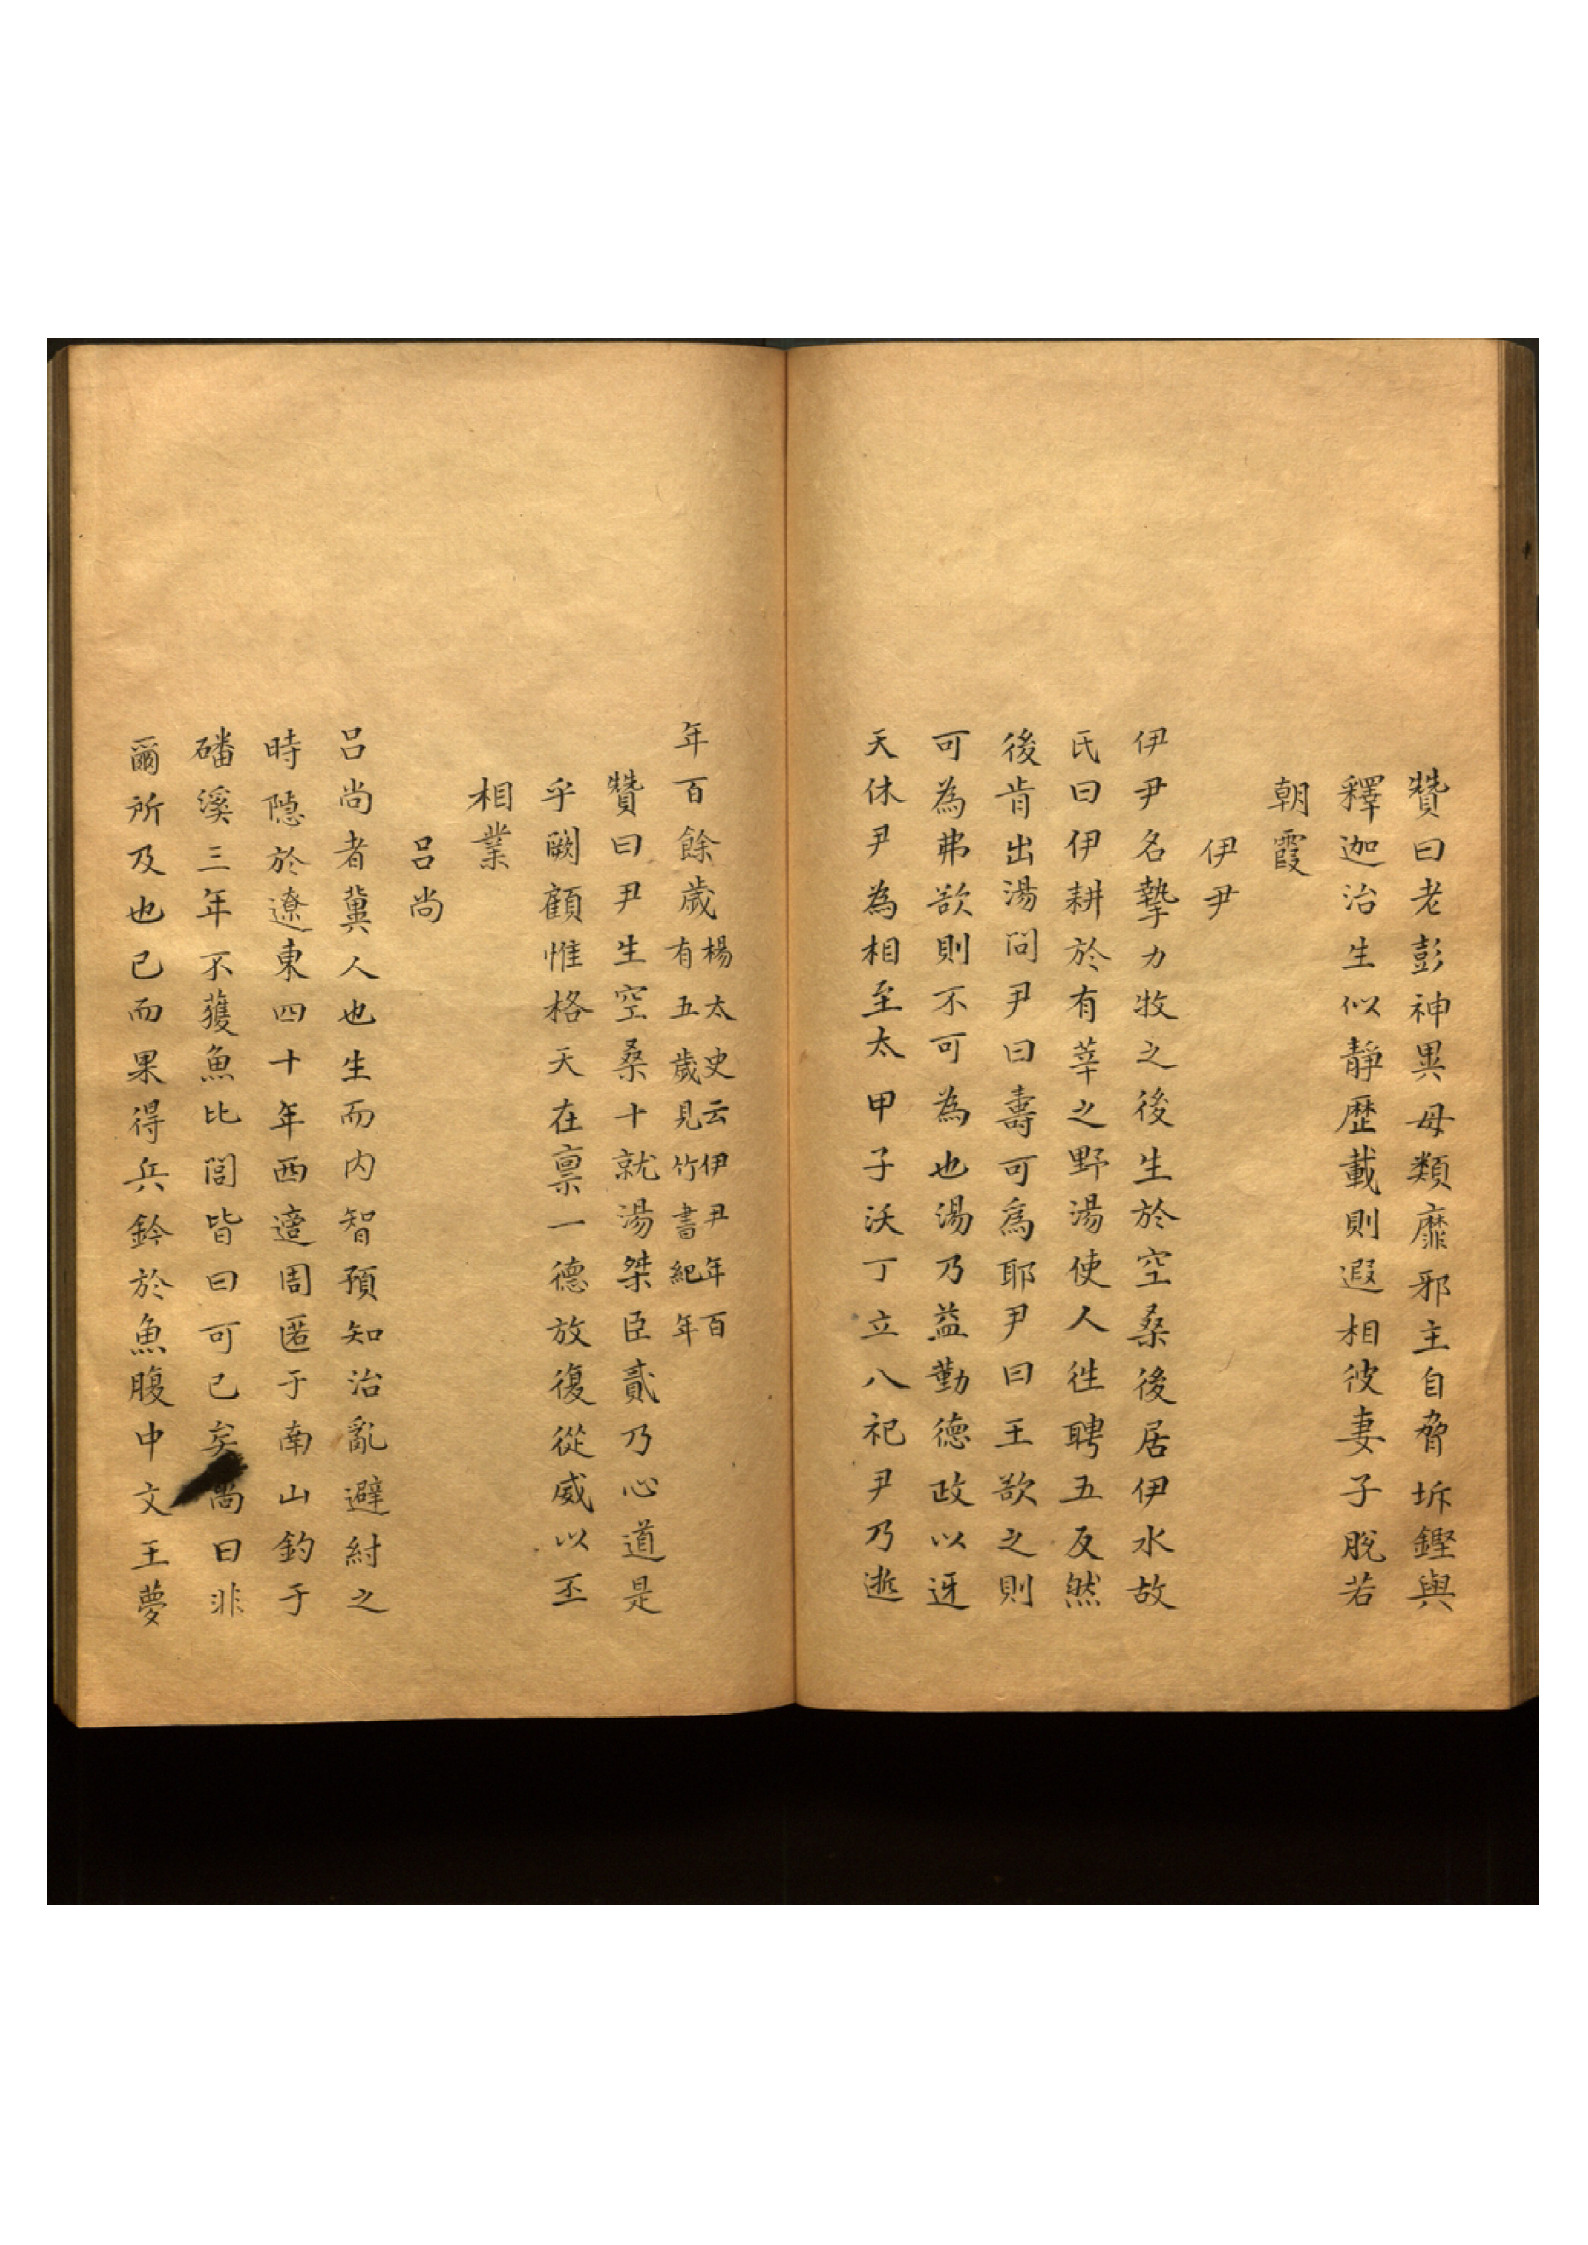 贊曰老彭神異母類靡邪主自脅坼鏗與
釋迦治生似靜歷載則遐相彼妻子脫若
朝霞
伊尹
伊尹名摯力牧之後生於空桑後居伊水故
氏曰伊耕於有莘之野湯使人徃聘五反然
後肯出湯問尹曰壽可爲耶尹曰王欲之則
可為弗欲則不可為也湯乃益勤德政以迓
天休尹為相至太甲子沃丁立八祀尹乃逝
年百餘歲
楊太史云伊尹年百
有五歲見竹書紀年
贊曰尹生空桑十就湯桀臣貳乃心道是
乎闕顧惟格天在禀一德放復從威以丕
相業
呂尚
呂尚者冀人也生而内智預知治亂避紂之
時隠於遼東四十年西適周匿于南山釣于
磻溪三年不獲魚比閭皆曰可已矣尚曰非
爾所及也已而果得兵鈐於魚腹中文王夢